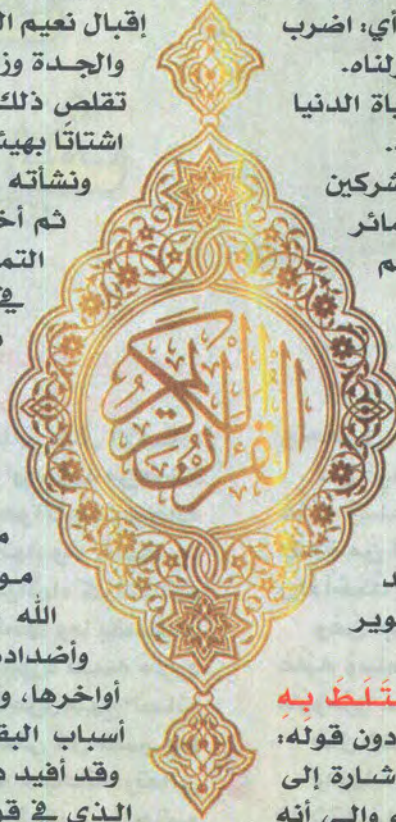 أي: اضرب
لناه.
ياة الدنيا
شركين
مائر
م
د
وير
تَلَطَ بِهِ
دون قوله:
شارة إلى
وإلى أنه
القرآن الكريم
إقبال نعيم ال
والجدة وز
تقلص ذلك
اشتاتًا بهيئ
ونشأته
ثم أخ
التم
في
م
مو
الله
وأضداد
أواخرها، و
أسباب البق
وقد أفيد ه
الذي في قو